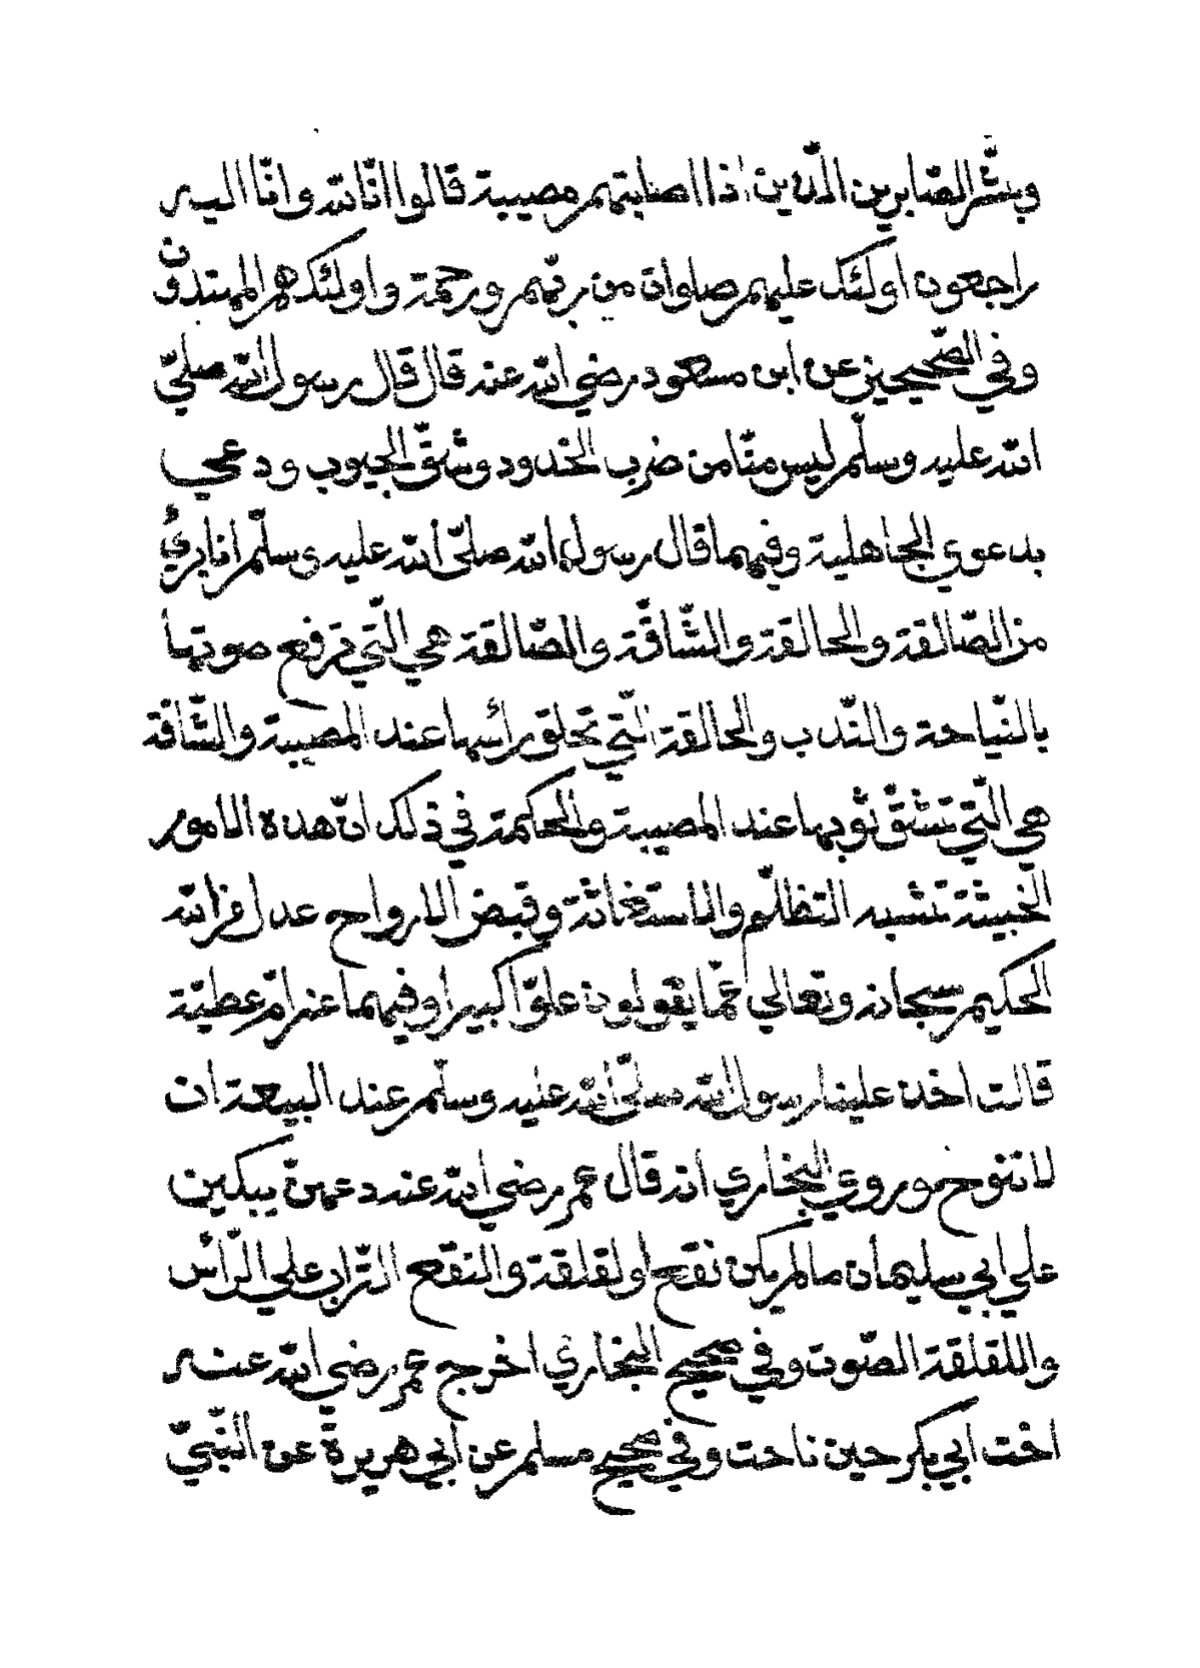 وبشّر الصّابرين الّذين اذا اصابتهم مصيبة قالوا انّا لله وانّا اليه
راجعون اولئك عليهم صلوات من ربّهم ورحمة واولئك هم المهتدون
وفي الصّحيحين عن ابن مسعود رضي الله عنه قال قال رسول الله صلّي
الله عليه وسلّم ليس منّا من ضرب الخدود وشقّ الجيوب ودعي
بدعوي الجاهلية وفيهما قال رسول الله صلّي الله عليه وسلّم انا برئ
من الصّالقة والحالقة والشّاقّة والصّالقة هي الّتي ترفع صوتها
بالنّياحة والنّدب والحالقة الّتي تحلق رأسها عند المصيبة والشّاقة
هي الّتي تشقّ ثوبها عند المصيبة والحكمة في ذلك انّ هذه الامور
الخبيثة تشبه التظلّم والاستغاثة وقبض الارواح عدل من الله
الحكيم سبحانه وتعالي عمّا يقولون علوّا كبيرا وفيهما عن امّ عطيّة
قالت اخذ علينا رسول الله صلّي الله عليه وسلّم عند البيعة ان
لا ننوح وروي البخاري انه قال عمر رضي الله عنه دعهنّ يبكين
علي ابي سليمان مالم يكن نقع او لقلقة والنقع التّراب علي الرّأس
واللقلقة الصّوت وفي صحيح البخاري اخرج عمر رضي الله عنه
اخت ابي بكر حين ناحت وفي صحيح مسلم عن ابي هريرة عن النّبيّ